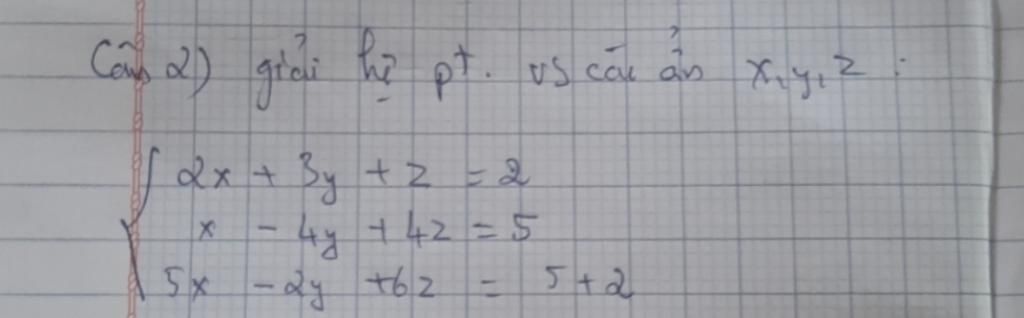 Câu 2) giải hệ pt. vs các ẩn x, y, z :
2x + 3y + z = 2
x - 4y + 4z = 5
5x - 2y + 6z = 5 + 2